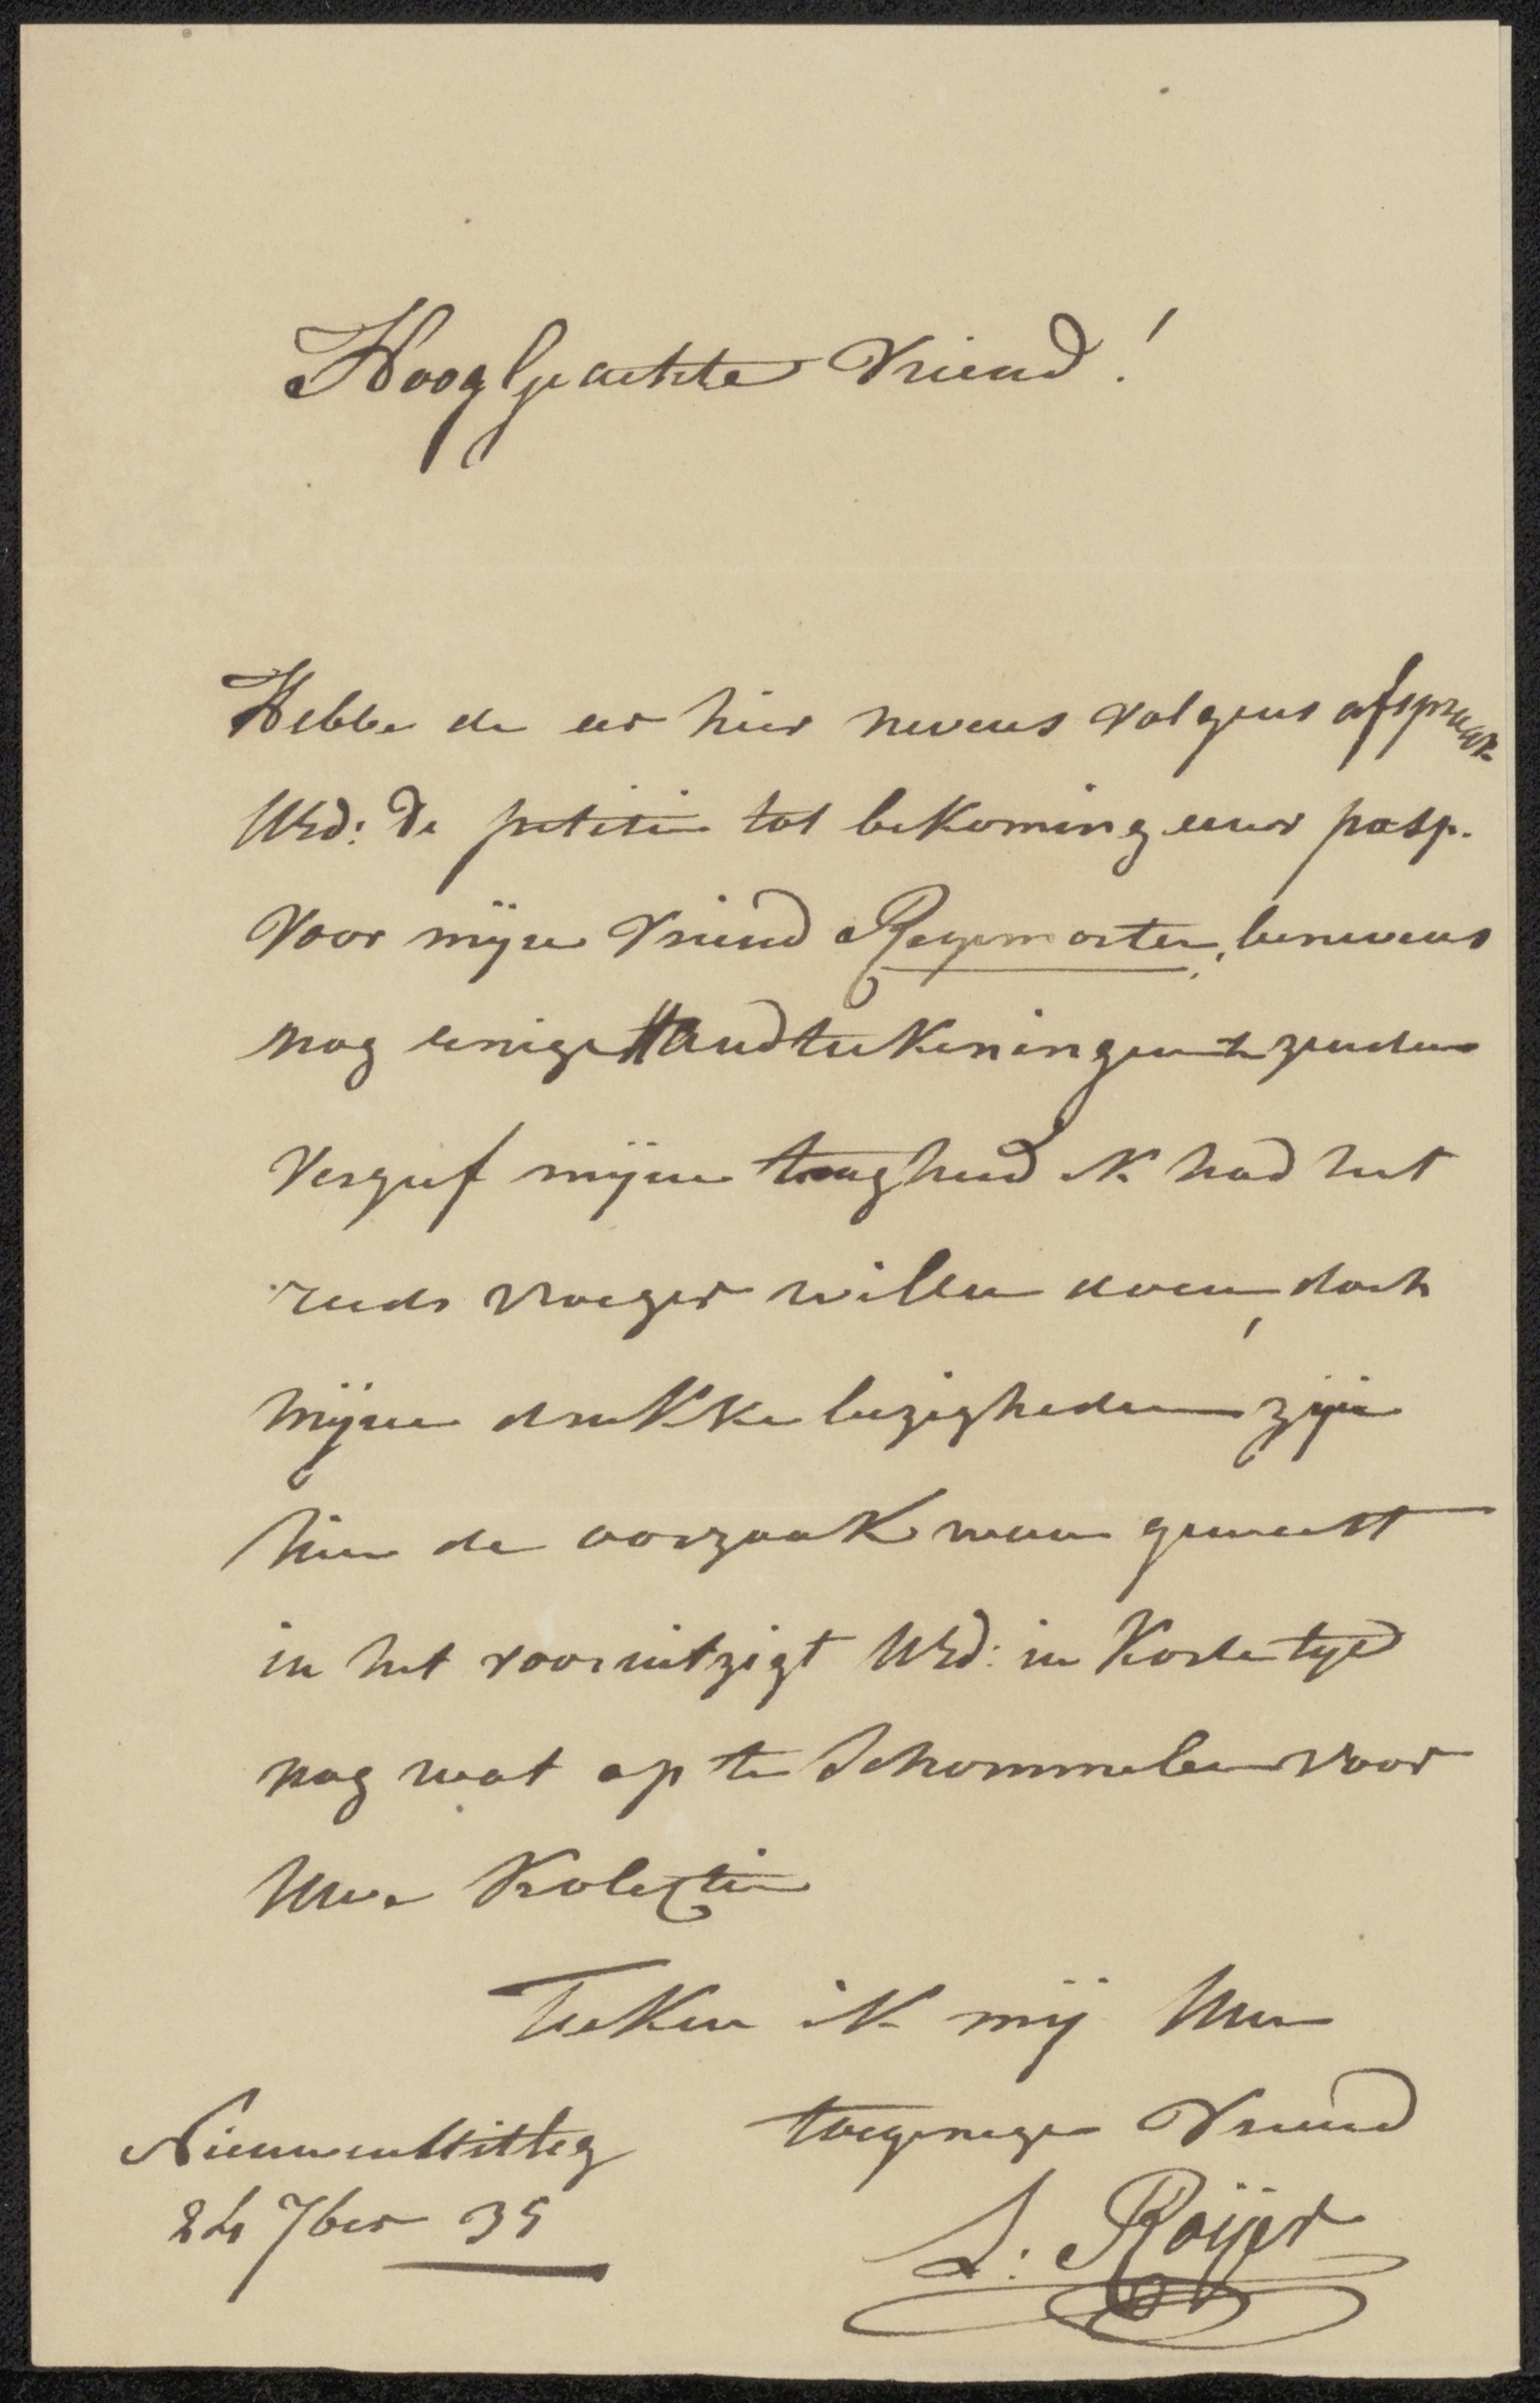 HoogGeachte Vriend!
Hebbe de eer hier nevens volgens afspraak
UEd: De petitie tot bekoming eener pasp.
Voor mijne Vriend Regemorter, benevens
nog eenige Handteekeningen te zenden
Vergeef mijne traagheid ik had het
reeds vroeger willen doen, doch
mijne drukke bezigheden zijn
hier de oorzaak van geweest
in het vooruitzigt UEd: in Korte tyd
nog wat op te Schommelen voor
Uwe Kolectie
Teeken ik mij Uw
toegenege Vriend
L: Roijer
Nieuwenuitleg
24 7ber 35